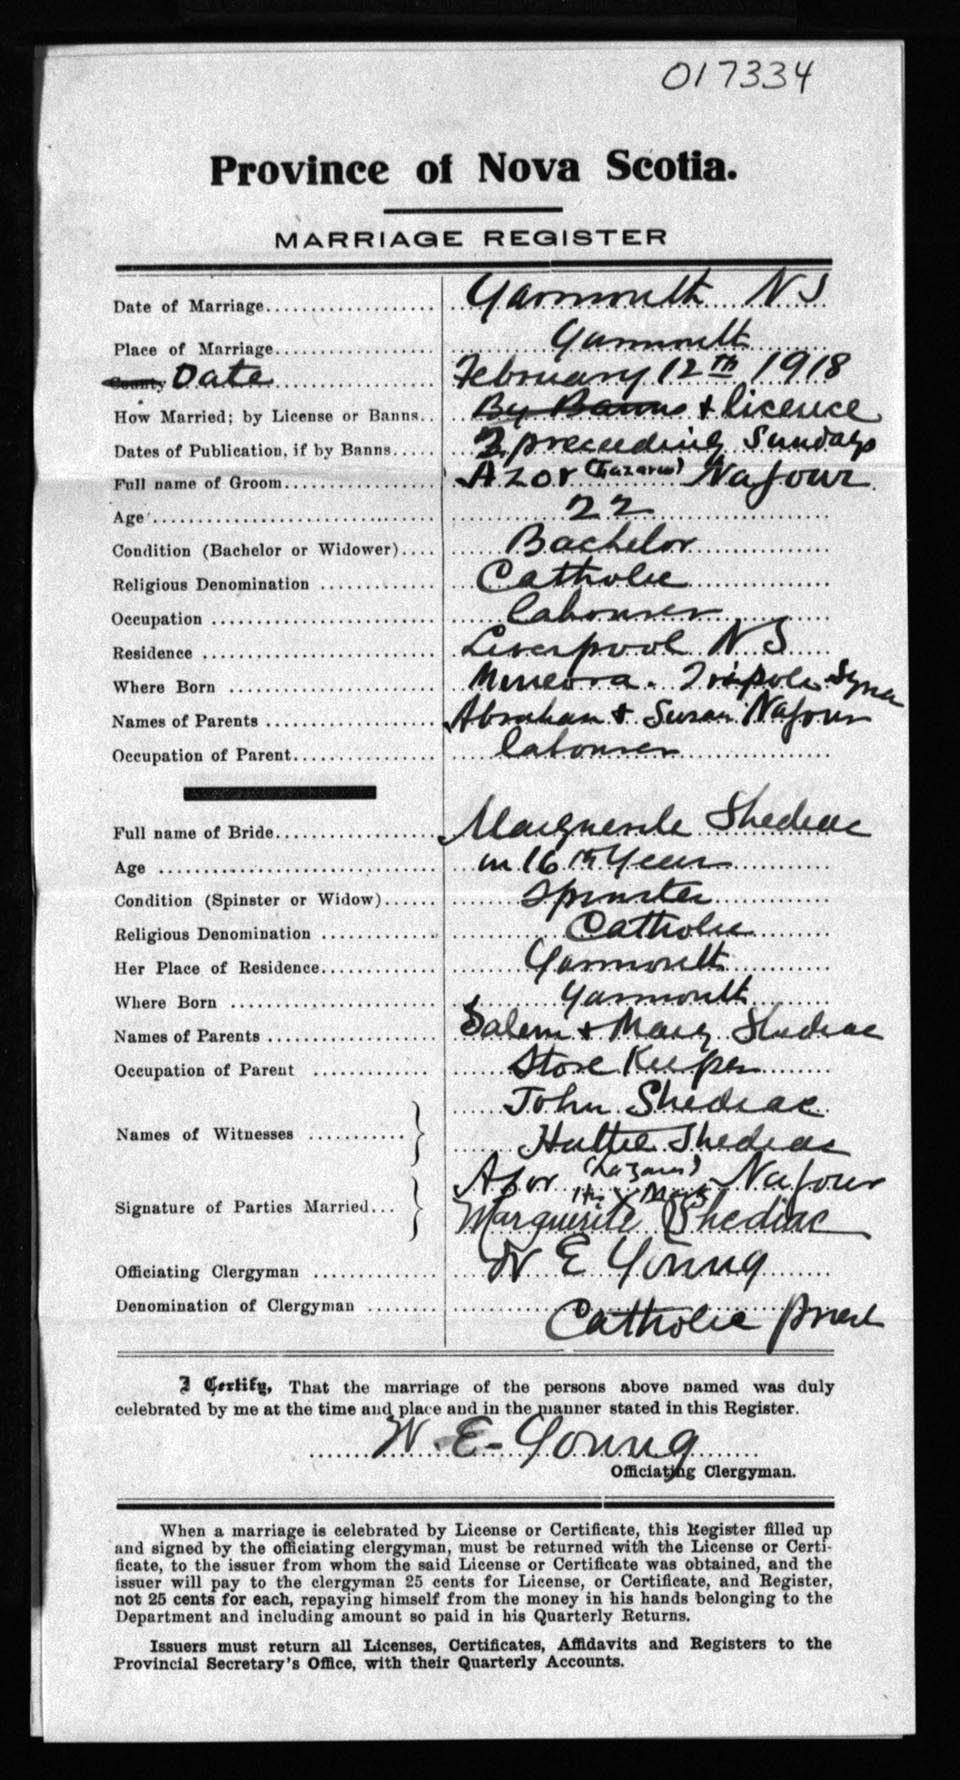 017334
Province of Nova Scotia.
MARRIAGE REGISTER
Date of Marriage.................... Yarmouth NS
Place of Marriage................... Yarmouth
County Date ................... February 12th 1918
How Married; by License or Banns.. By Banns + licence
Dates of Publication, if by Banns..... 2 preceeding Sundays
Full name of Groom................. Azor (Lazarus) Nafour
Age ................................. 22
Condition (Bachelor or Widower).... Bachelor
Religious Denomination ............. Catholic
Occupation .......................... labourer
Residence ........................... Liverpool NS
Where Born ........................ Tripoli Syria
Names of Parents .................... Abraham & Susan Nafour
Occupation of Parent................. labourer
Full name of Bride................... Marguerite Shediac
Age ................................ in 16th Year
Condition (Spinster or Widow)...... Spinster
Religious Denomination ............. Catholic
Her Place of Residence.............. Yarmouth
Where Born ........................ Yarmouth
Names of Parents .................... Salem & Mary Shediac
Occupation of Parent ............. Store Keeper
John Shediac
Names of Witnesses ........... Hattie Shediac
Azor (Lazarus) Nafour
His X Mark
Signature of Parties Married... Marguerite Shediac
Officiating Clergyman .............. W E Young
Denomination of Clergyman ........ Catholic priest
I Certify, That the marriage of the persons above named was duly
celebrated by me at the time and place and in the manner stated in this Register.
W. E. Young
Officiating Clergyman.
When a marriage is celebrated by License or Certificate, this Register filled up
and signed by the officiating clergyman, must be returned with the License or Certi-
ficate, to the issuer from whom the said License or Certificate was obtained, and the
issuer will pay to the clergyman 25 cents for License, or Certificate, and Register,
not 25 cents for each, repaying himself from the money in his hands belonging to the
Department and including amount so paid in his Quarterly Returns.
Issuers must return all Licenses, Certificates, Affidavits and Registers to the
Provincial Secretary's Office, with their Quarterly Accounts.